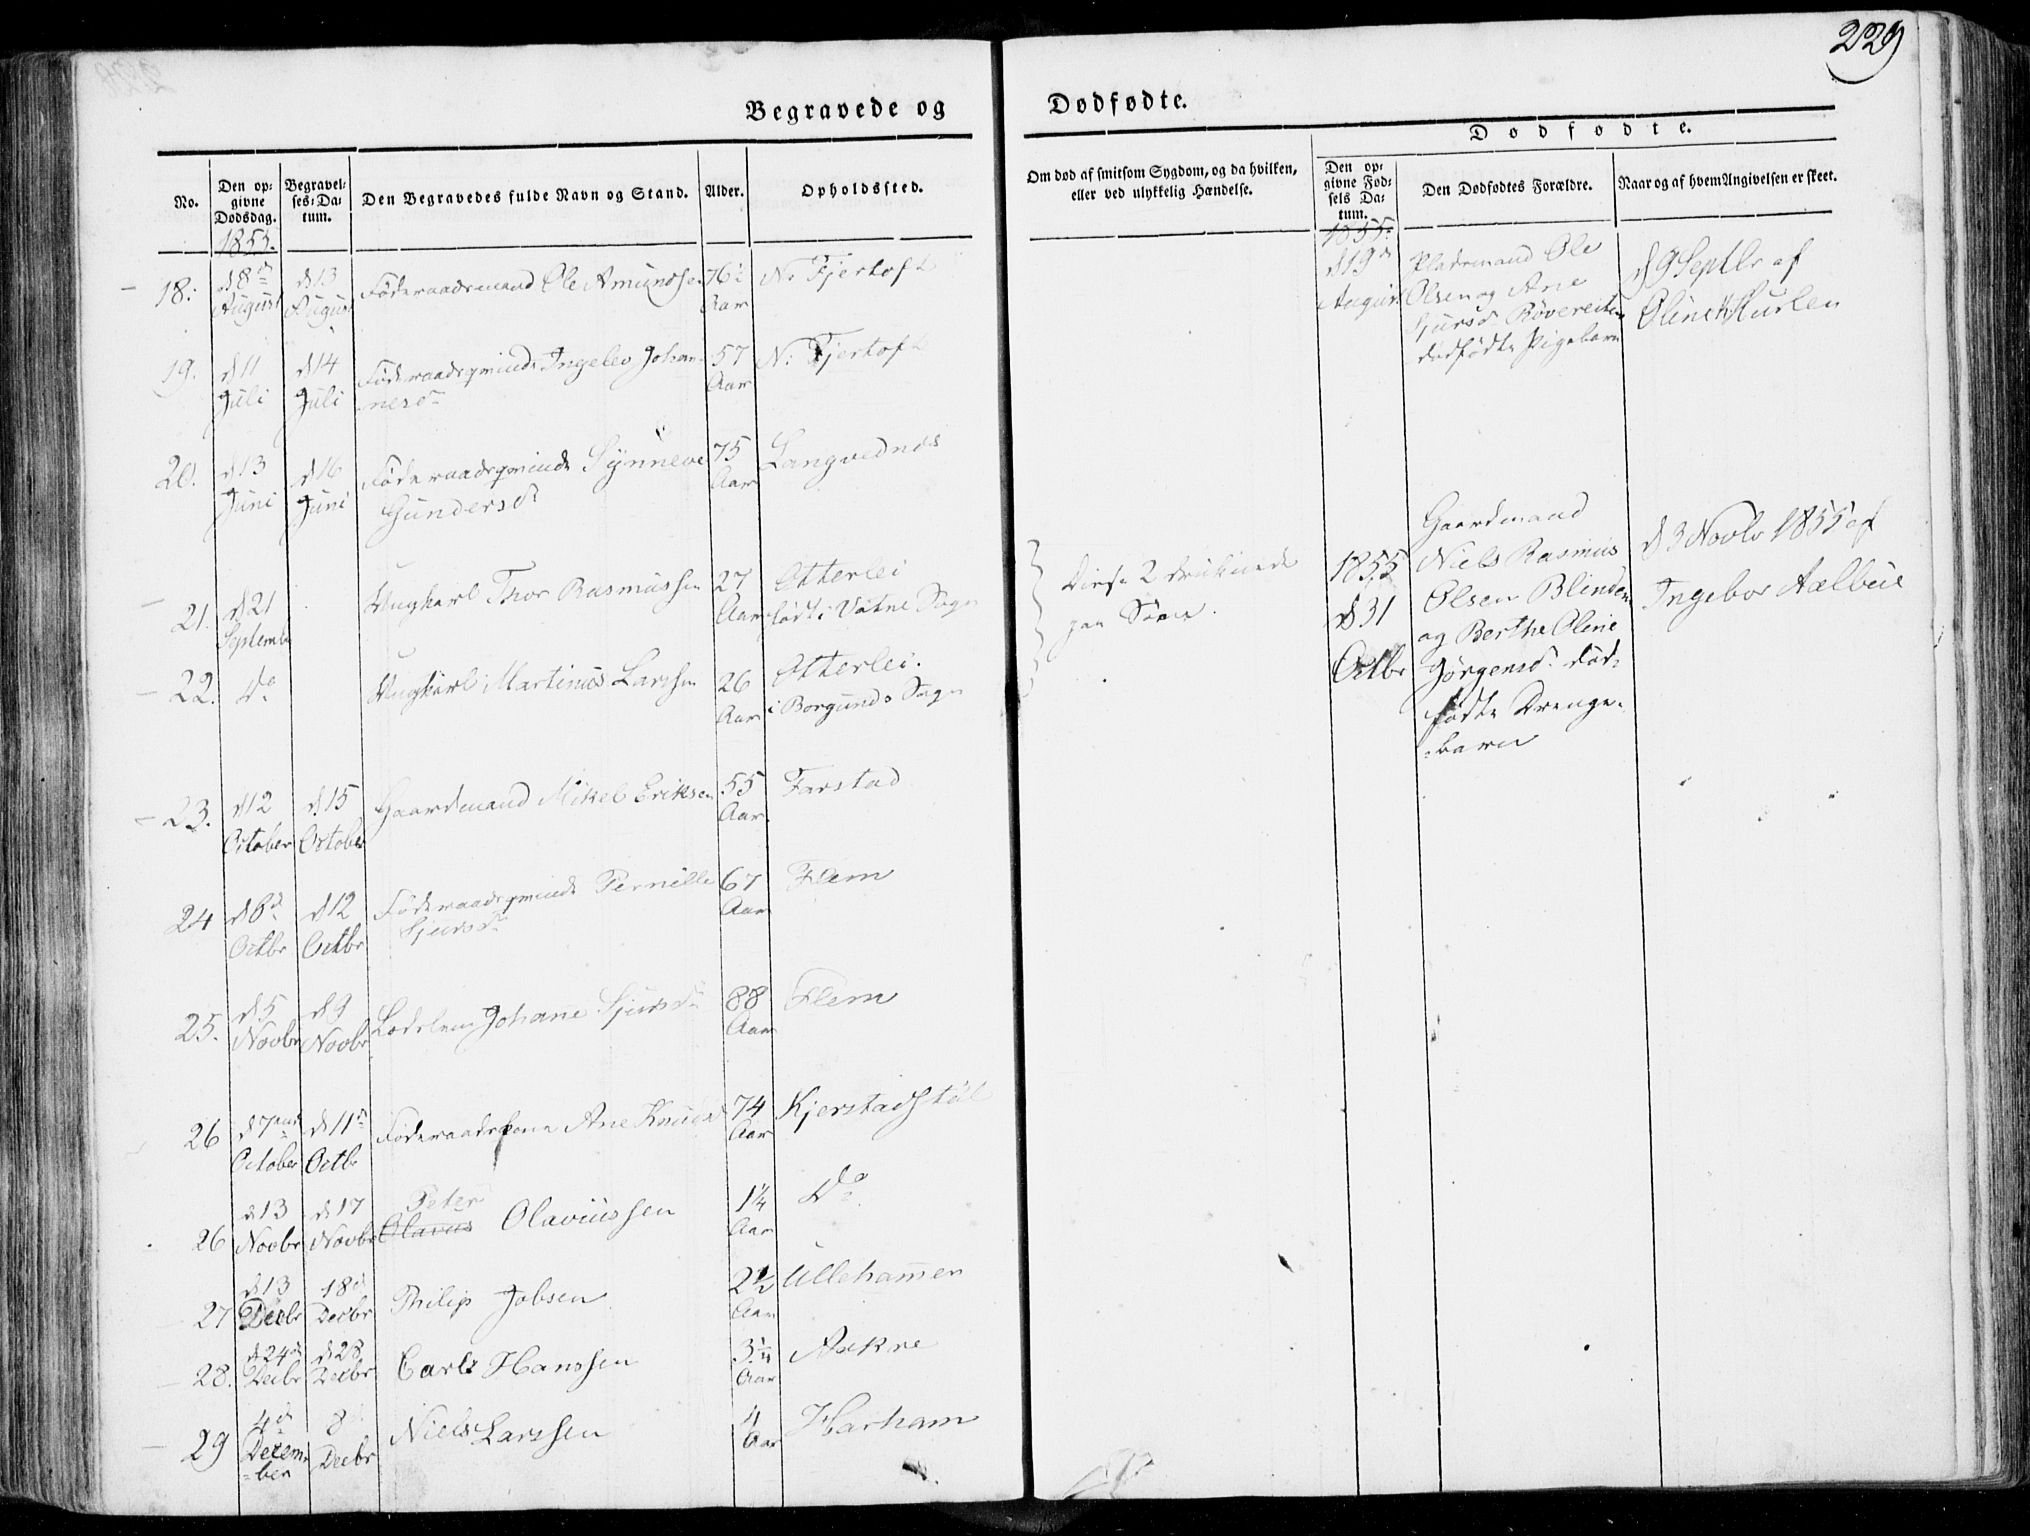 229
Begravede og Dødfødte.
No.
Den opgivne Dødsdag.
Begravelses-Datum.
Den Begravedes fulde Navn og Stand.
Alder.
Opholdssted.
Om død af smitsom Sygdom, og da hvilken, eller ved ulykkelig Hændelse.
Dødfødte.
Den opgivne Fødsels Datum.
Den Dødfødtes Forældre.
Naar og af hvem Angivelsen er skeet.
1855.
18. d 8de August d 13 August Föderaadsmand Ole Amundsen 76½ Aar N. Fjertoft
19. d 11 Juli d 14 Juli Föderaadsqvinde Ingelev Johan-
nesd 57 Aar N: Fjertoft
20. d 13 Juni d 16 Juni Föderaadsqvinde Synneve
Gundersd 75 Aar Langvednes
21. d 21 September Ungkarl Thor Rasmussen 27 Aar Otterlei
født i Vatne Sogn
22. Do Ungkarl Martinus Larssen 26 Aar Otterlei.
i Borgunds Sogn
Disse 2 druknede
paa Søen.
23. d 12 October d 15 October Gaardmand Mikel Eriksen 55 Aar Farstad
24 d 6d Octbr d 12 Octbr Föderaadsqvinde Pernille
Sjursd 67 Aar Flem
25. d 5 Novbr d 9 Novbr Johane Sjursd 88 Aar Flem
26 d 7 October d 11d Octbr Föderaadskone Ane Knudsd 74 Aar Kjerstadstöl
26 d 13 Novbr d 17 Novbr Peter
Olavus Olaviussen 1¼ Aar Do
27 d 13 Decbr 18d Decbr Philip Jobsen 2½ Aar Ullehamen
28. d 24de Decbr d 28 Decbr Carl Hanssen 3¼ Aar Aakre
29 4d Decem-
ber 8d Decbr Niels Larssen 4 Aar Harham
1855.
d 19d August
Pladsmand Ole
Olsen og Ane
Sjursd Røvereiten
dødfødte Pigebarn
d 9 Septbr af
Oline Hurlen
1855
d 31
Octbr
Gaardmand
Niels Rasmus
Olsen Blindem
og Berthe Oline
Jørgensd. død-
fødte Drenge-
barn
d 3 Novbr 1855 af
Ingebor Aalbue